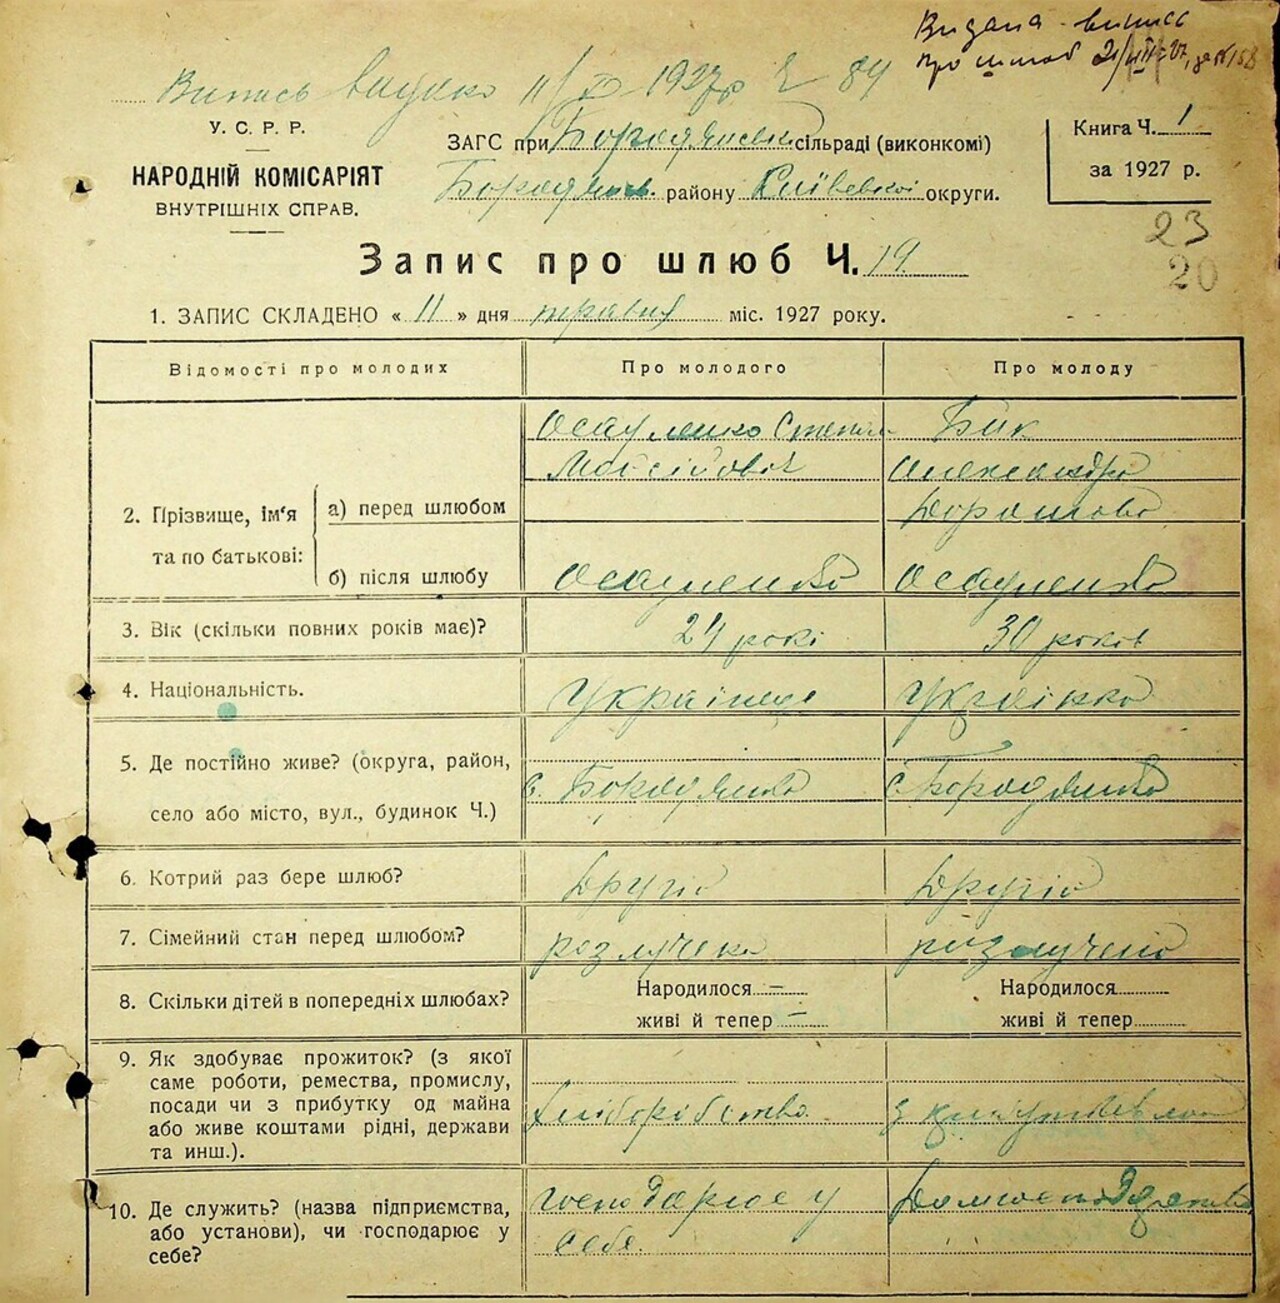 Видана випись
про шлюб
Випись видано 11/ 1927 р 84
У. С. Р. Р.
НАРОДНІЙ КОМІСАРІЯТ
ВНУТРІШНІХ СПРАВ.
ЗАГС при Бородянській сільраді (виконкомі)
Бородянськ. району Київської округи.
Книга Ч. 1
за 1927 р.
23
20
Запис про шлюб Ч. 19.
1. ЗАПИС СКЛАДЕНО « 11 » дня травня міс. 1927 року.
Відомості про молодих
Про молодого
Про молоду
2. Прізвище, ім'я
та по батькові:
а) перед шлюбом
Осауленко Степан
Мойсійович
Бик
Александра
Дорошова
б) після шлюбу
Осауленко
Осауленко
3. Вік (скільки повних років має)?
24 рокі
30 років
4. Національність.
Українець
Українка
5. Де постійно живе? (округа, район,
село або місто, вул., будинок Ч.)
с. Бородянка
с. Бородянка
6. Котрий раз бере шлюб?
Другій
Другій
7. Сімейний стан перед шлюбом?
розлучена
розлучена
8. Скільки дітей в попередніх шлюбах?
Народилося –
живі й тепер –
Народилося
живі й тепер
9. Як здобуває прожиток? (з якої
саме роботи, ремества, промислу,
посади чи з прибутку од майна
або живе коштами рідні, держави
та инш.).
Хліборобство.
10. Де служить? (назва підприємства,
або установи), чи господарює у
себе?
господарює у
себе.